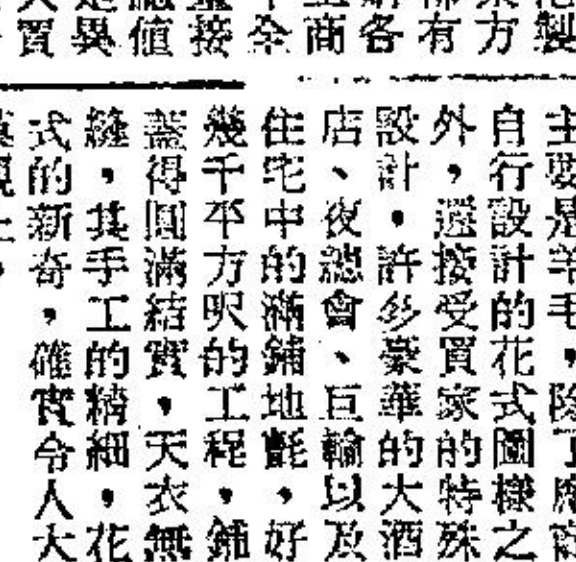 製
方
有
各
商
全
接
值
異
買
主要是羊毛，除了廠商
自行設計的花式圖樣之
外，還接受買家的特殊
設計，許多豪華的大酒
店、夜總會、巨輪以及
住宅中的滿鋪地氈，好
幾千平方呎的工程，鋪
蓋得圓滿結實，天衣無
縫，其手工的精細，花
式的新奇，確實令人大